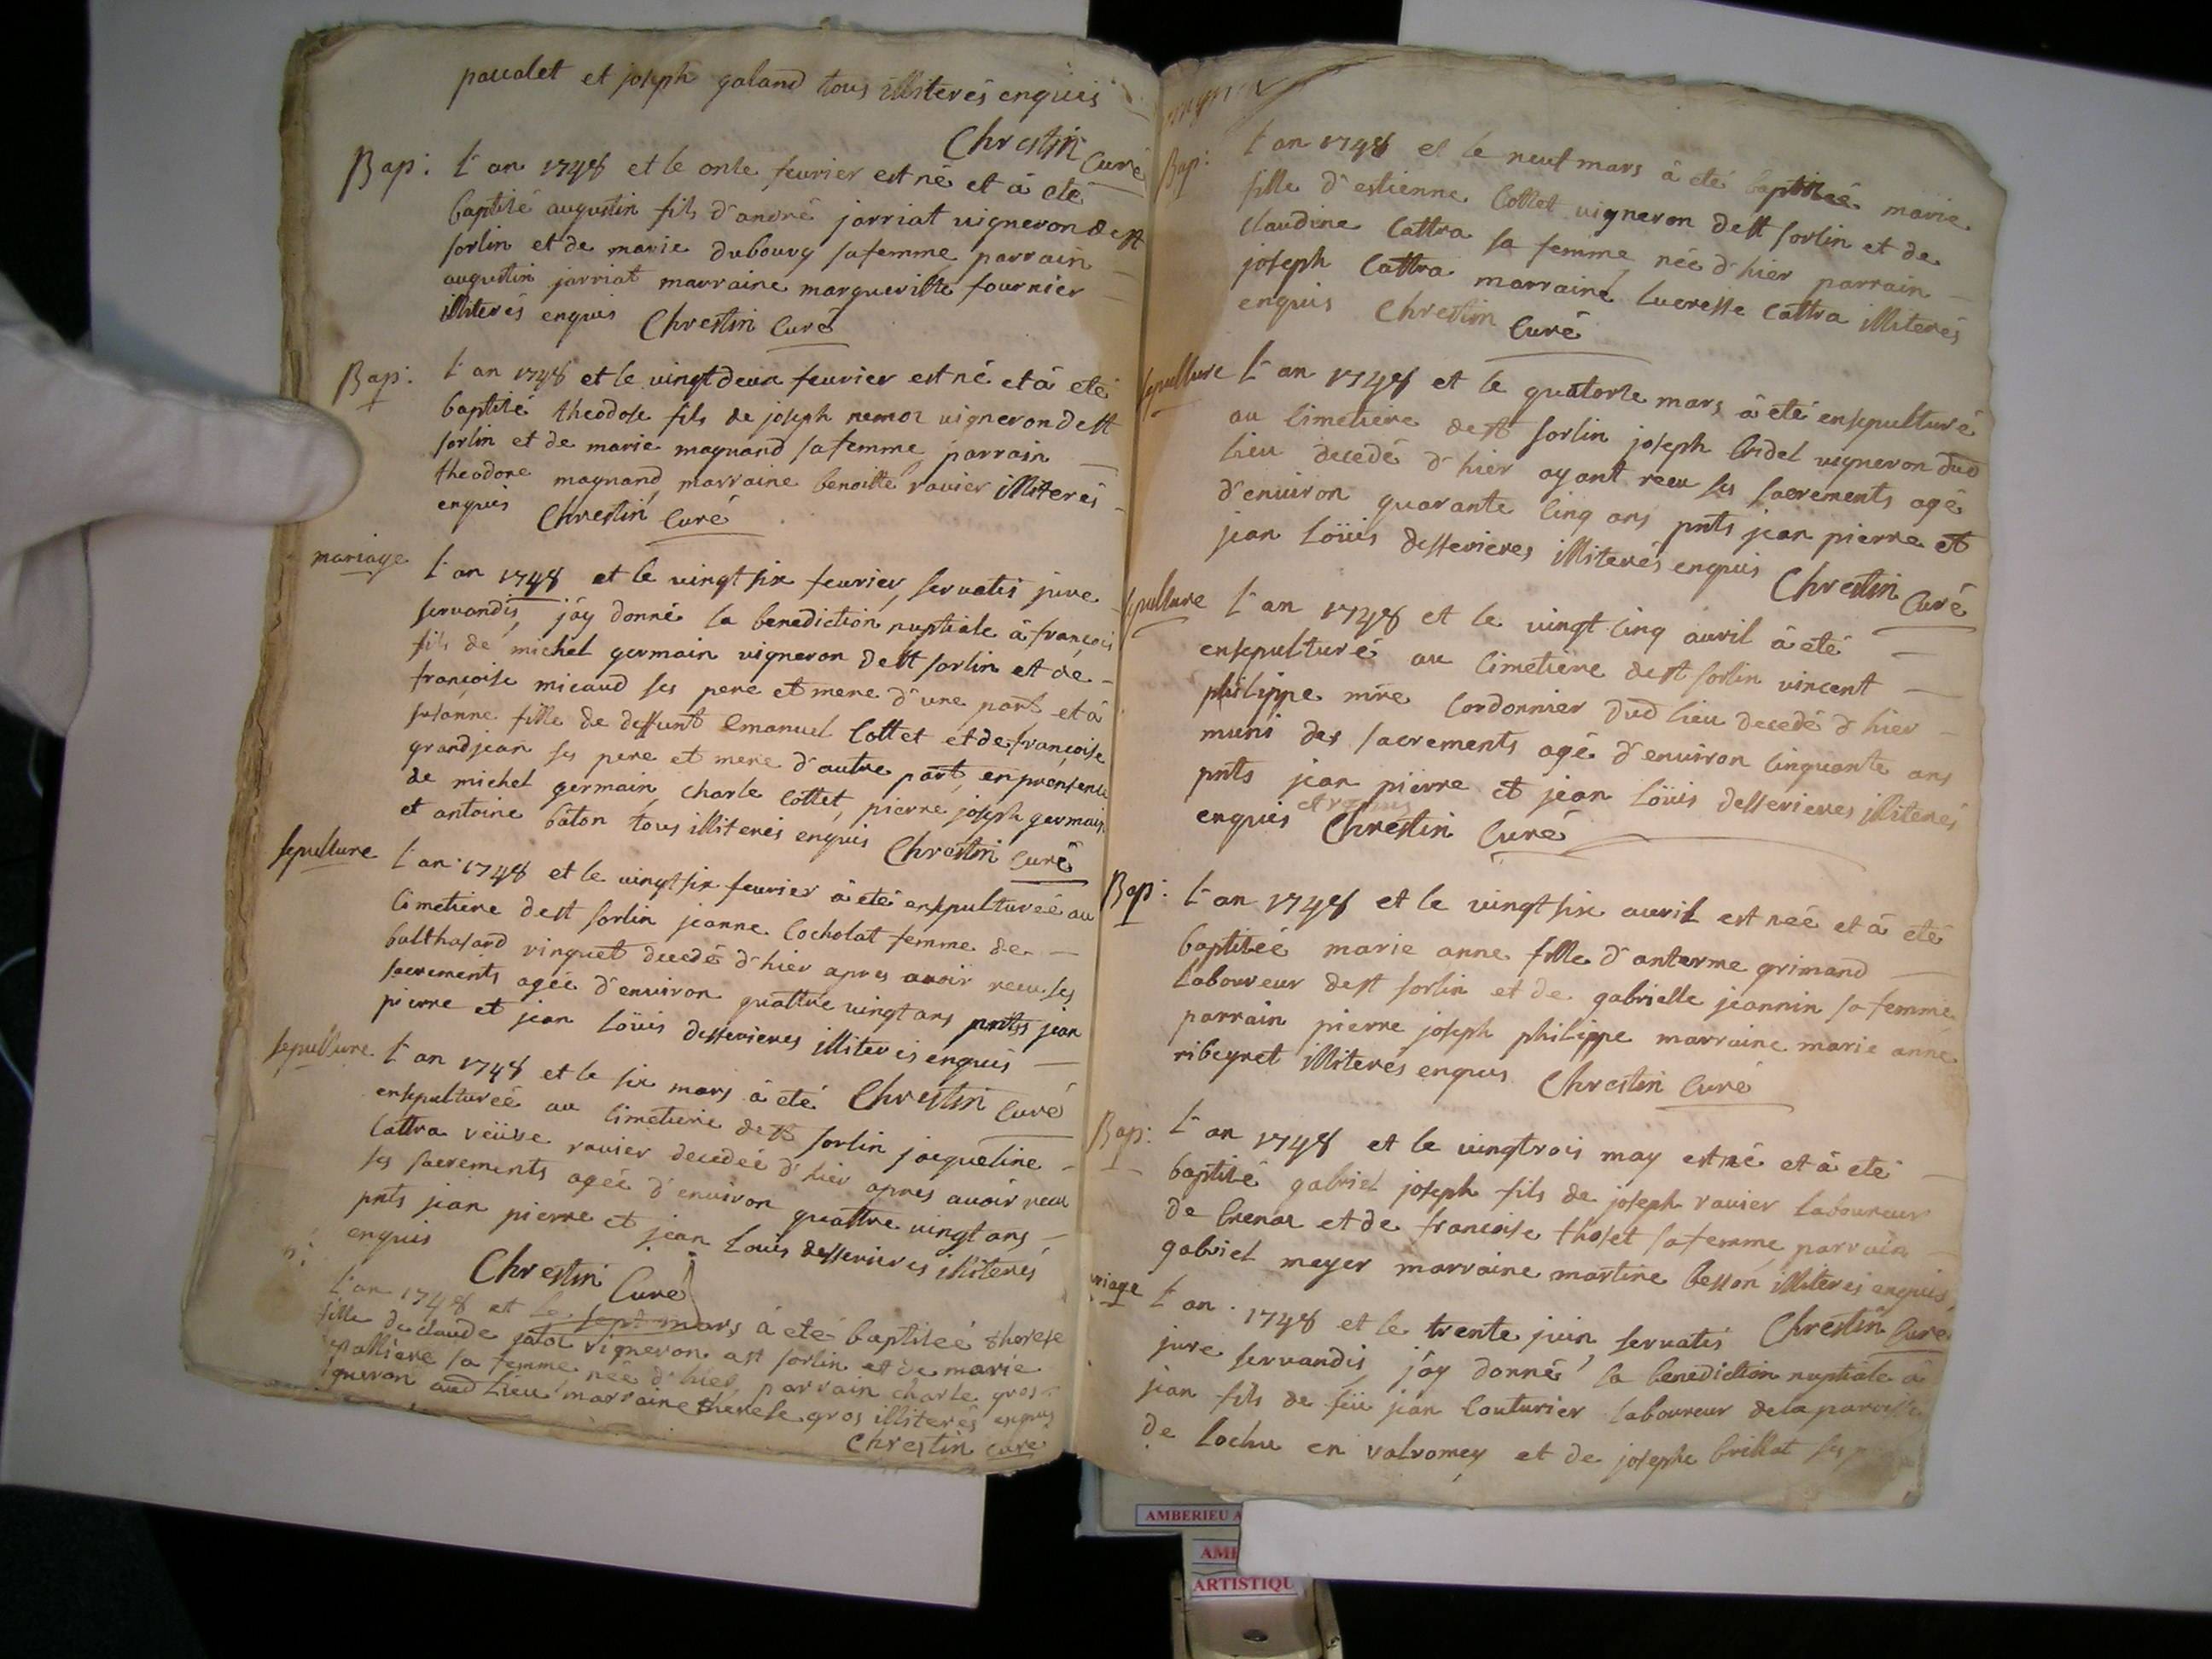 et joseph galand tous illiterés enquis
Chrestin Curé
Bap: L'an 1748 et le onze feurier est né et à eté
baptisé augustin fils d'andré jarriat uigneron de st
sorlin et de marie dubourg sa femme parrain
augustin jarriat marraine margueritte fournier
illiterés enquis Chrestin Curé
Bap: L'an 1748 et le uingt deux feurier est né et à eté
baptisé theodose fils de joseph uigneron de st
sorlin et de marie magnand sa femme parrain
theodore magnand marraine benoitte rauier illiterés
enquis Chrestin Curé
mariage L'an 1748 et le uingt six feurier, seruatis jure
seruandis, j'ay donné la benediction nuptiale à françois
fils de michel germain uigneron de st sorlin et de
françoise micaud ses pere et mere d'une part, et à
susanne fille de deffunt Emanuel Cottet et de françoise
grandjean ses pere et mere d'autre part, en presence
de michel germain, Charle Cottet, pierre joseph germain
et antoine bâton tous illiterés enquis Chrestin Curé
sepulture L'an 1748 et le uingt six feurier à eté ensepulturée au
Cimetiere de st sorlin jeanne Cocholat femme de
balthasard vinquet decedé d'hier apres auoir receu ses
sacrements agée d'enuiron quattre uingt ans pnts jean
pierre et jean Loüis desserieres illiterés enquis
Chrestin Curé
sepulture L'an 1748 et le six mars à eté
ensepulturée au Cimetiere de st sorlin jacqueline
Cattra veüve rauier decedée d'hier apres auoir receu
ses sacrements agée d'enuiron quattre uingt ans
pnts jean pierre et jean Louis desserieres illiterés
enquis
Chrestin Curé
L'an 1748 et le sept mars à eté baptisée therese
fille de claude uigneron a st sorlin et de marie
sa femme, née d'hier, parrain charle gros
aud Lieu marraine therese gros illiterés enquis
Chrestin curé
Bap: L'an 1748 et le neuf mars à eté baptisée marie
fille d'estienne Cottet uigneron de st sorlin et de
Claudine Cattra sa femme née d'hier parrain
joseph Cattra marraine Lucresse Cattra illiterés
enquis Chrestin Curé
sepulture L'an 1748 et le quatorze mars à eté ensepulturé
au Cimetiere de st sorlin joseph uigneron dud
Lieu decedé d'hier ayant receu ses sacrements agé
d'enuiron quarante Cinq ans pnts jean pierre et
jean Loüis desserieres illiterés enquis
Chrestin Curé
sepulture L'an 1748 et le uingt Cinq auril à eté
ensepulturé au Cimetiere de st sorlin vincent
philippe mre Cordonnier dud Lieu decedé d'hier
muni des sacrements agé d'enuiron Cinquante ans
pnts jean pierre et jean Loüis desserieres illiterés
enquis Chrestin Curé
Bap: L'an 1748 et le uingt six auril est née et à eté
baptisée marie anne fille d'anterme grimand
Laboureur de st sorlin et de gabrielle jeannin sa femme
parrain pierre joseph philippe marraine marie anne
ribeyret illiterés enquis Chrestin Curé
Bap: L'an 1748 et le uingtrois may est né et à eté
baptisé gabriel joseph fils de joseph rauier Laboureur
de et de francoise thoset sa femme, parrain
gabriel meyer marraine martine besson illiterés enquis,
Chrestin Curé
riage L'an 1748 et le trente juin, seruatis
jure seruandis, j'ay donné la benediction nuptiale à
jean fils de feü jean Couturier Laboureur de la paroisse
de Lochu en valromey et de josephe brillat ses
AMBERIEU A
AM
ARTISTIQU